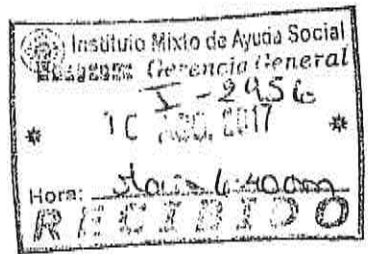 Instituto Mixto de Ayuda Social
Gerencia General
I-2956
* 1 AGO. 2017 *
Hora:
RECIBIDO